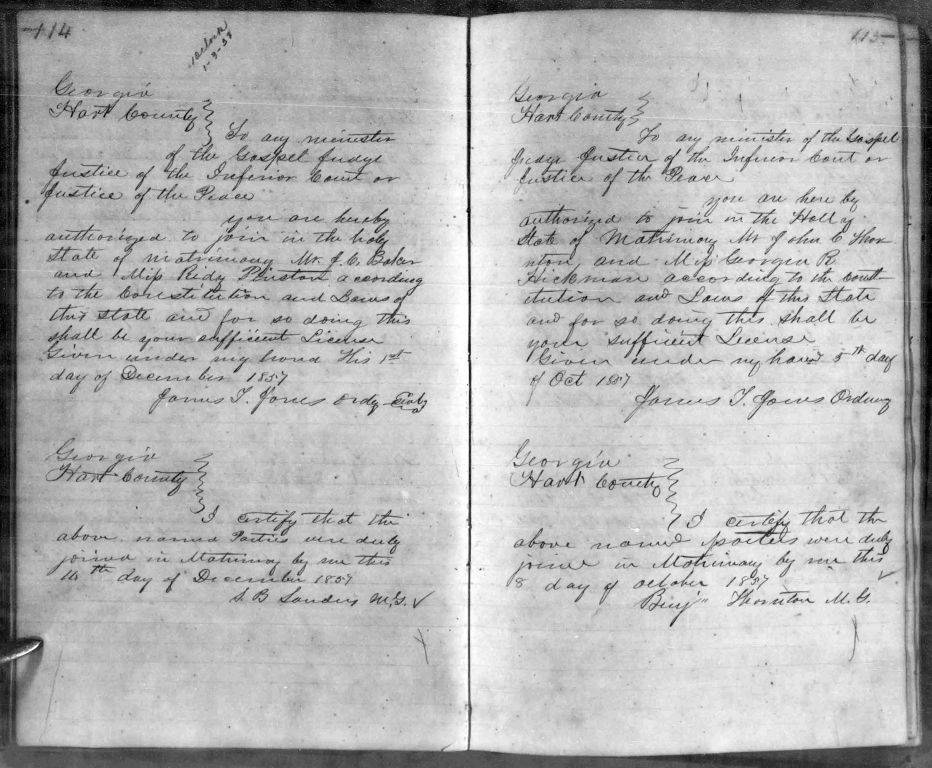 114
1-8-58
Georgia
Hart County
To any minister
of the Gospel Judge
Justice of the Inferior Court or
Justice of the Peace
you are hereby
authorized to join in the holy
State of matrimony Mr. J. C. Baker
and Miss according
to the Constitution and Laws of
this State and for so doing this
shall be your sufficient License
Given under my hand this 1st
day of December 1857
James T. Jones Ordy
Georgia
Hart County
I certify that the
above named Parties were duly
joined in Matrimony by me this
10th day of December 1857
S. B. Sanders M.G.
115
Georgia
Hart County
To any minister of the Gospel
Judge Justice of the Inferior Court or
Justice of the Peace
you are here by
authorized to join in the Holly
State of Matrimony Mr. John C. Thor
nton and Miss Georgia R.
Hickman according to the Consti
tution and Laws of this State
and for so doing this shall be
your sufficient License
Given under my hand 5th day
of Oct 1857
James T. Jones Ordinary
Georgia
Hart County
I certify that the
above named parties were duly
joined in Matrimony by me this
8 day of October 1857
Benj Thornton M.G.